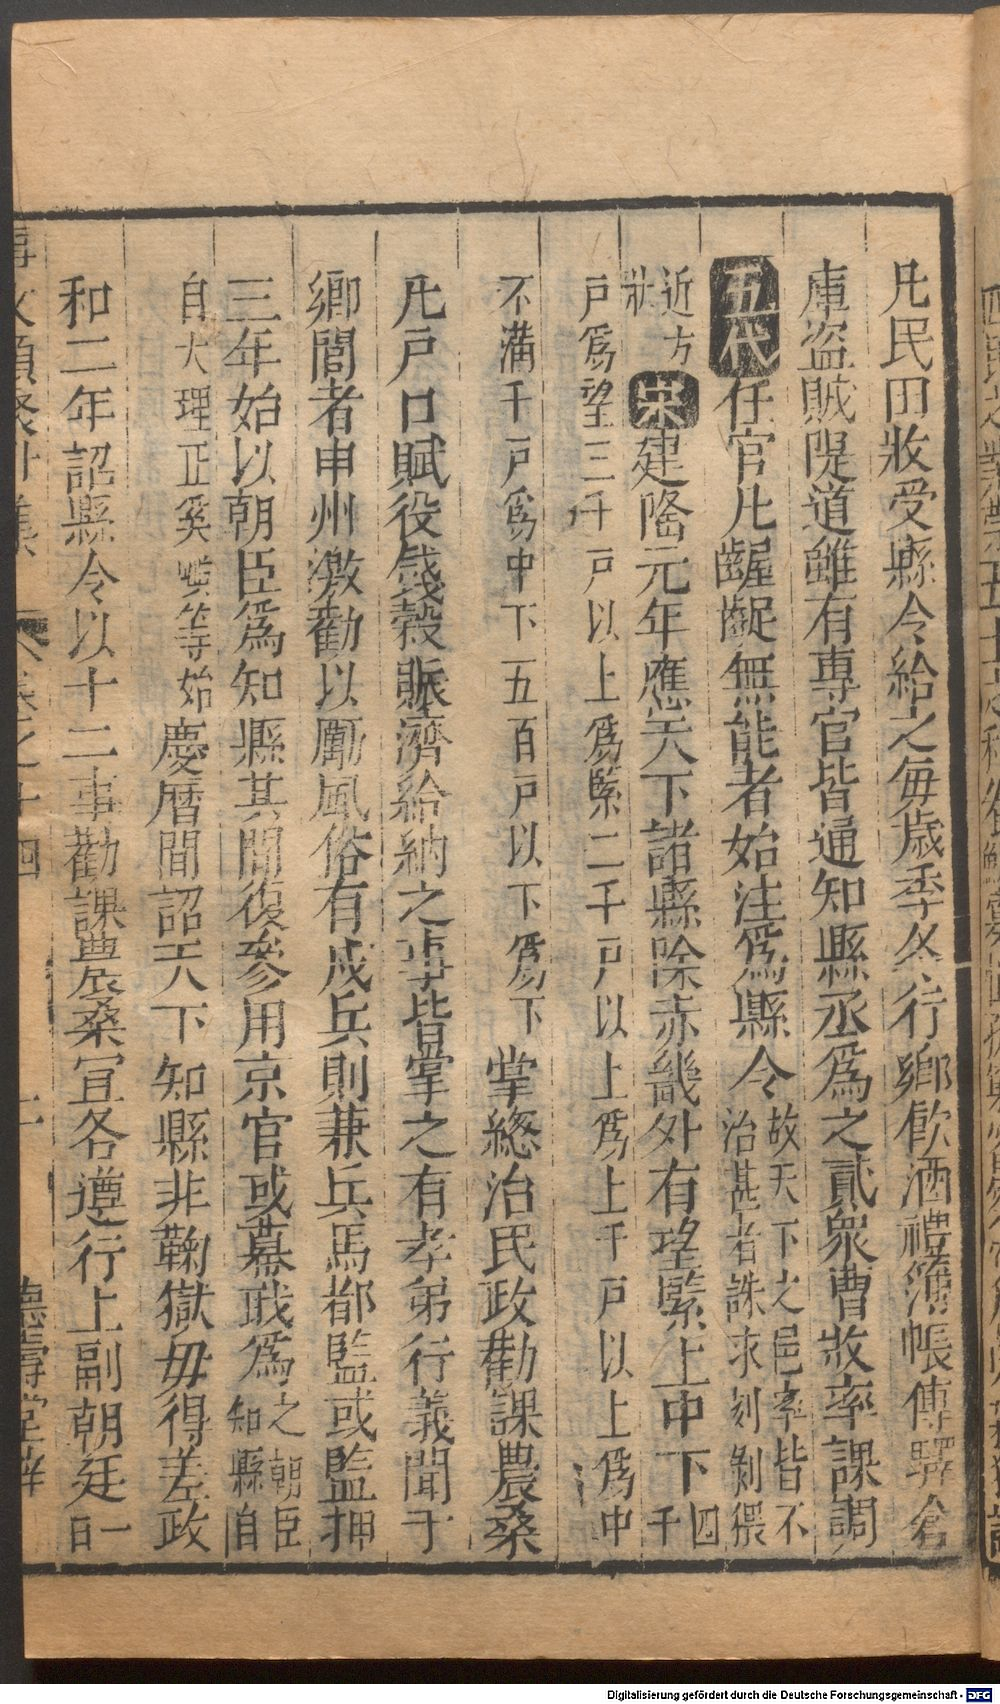 凡民田收受縣令給之每歲季冬行鄉飲酒禮簿帳傳驛倉
庫盜賊隄道雖有專官皆通知縣丞爲之貳衆曹收率課調
五代任官凡齷齪無能者始注爲縣令故天下之邑率皆不
治甚者誅求刻剝猥
近方
狀宋建隆元年應天下諸縣除赤畿外有望緊上中下四
千
戶爲望三千戶以上爲緊二千戶以上爲上千戶以上爲中
不滿千戶爲中下五百戶以下爲下掌緫治民政勸課農桑
凡戶口賦役錢穀賑濟給納之事皆掌之有孝弟行義聞于
鄉閭者申州激勸以勵風俗有戍兵則兼兵馬都監或監押
三年始以朝臣爲知縣其間復參用京官或幕職爲之朝臣
知縣自
自大理正奚嶼等始慶曆間詔天下知縣非鞫獄毋得差政
和二年詔縣令以十二事勸課農桑宜各遵行上副朝廷一
曰
事文類聚外集 卷之十四 二 德壽堂梓
Digitalisierung gefördert durch die Deutsche Forschungsgemeinschaft - DFG